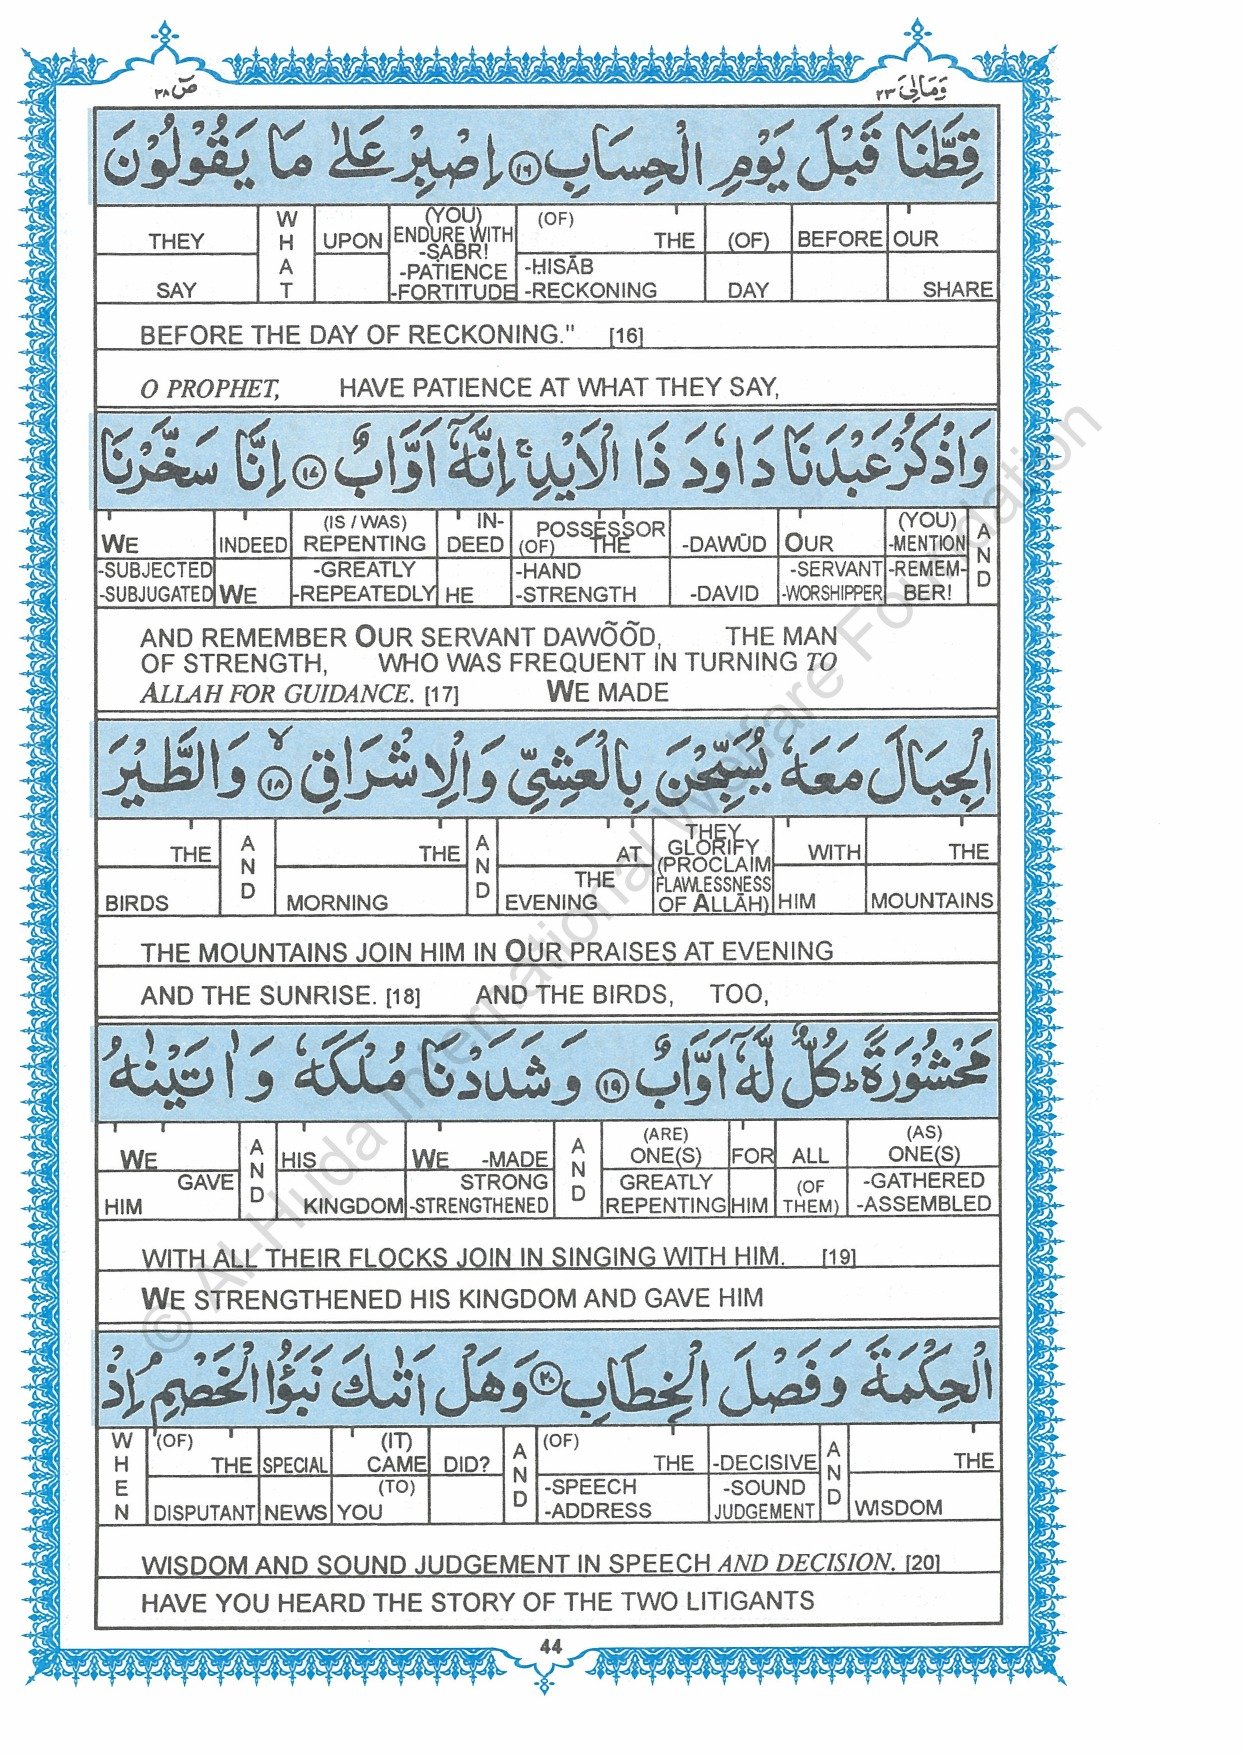 صٓ ٣٨
وَمَالِیَ ٢٣
قِطَّنَا قَبْلَ يَوْمِ الْحِسَابِ ﴿١٦﴾ اِصْبِرْ عَلٰى مَا يَقُوْلُوْنَ
THEY WHAT UPON (YOU) ENDURE WITH -ṢABR! (OF) THE (OF) BEFORE OUR
SAY -PATIENCE -FORTITUDE -ḤISĀB -RECKONING DAY SHARE
BEFORE THE DAY OF RECKONING." [16]
O PROPHET, HAVE PATIENCE AT WHAT THEY SAY,
وَاذْكُرْ عَبْدَنَا دَاوٗدَ ذَا الْاَيْدِ ۚ اِنَّهٗٓ اَوَّابٌ ﴿١٧﴾ اِنَّا سَخَّرْنَا
WE INDEED (IS / WAS) REPENTING IN-DEED POSSESSOR (OF) THE -DAWŪD OUR (YOU) -MENTION AND
-SUBJECTED -SUBJUGATED WE -GREATLY -REPEATEDLY HE -HAND -STRENGTH -DAVID -SERVANT -WORSHIPPER -REMEM-BER!
AND REMEMBER OUR SERVANT DAWÕÕD, THE MAN
OF STRENGTH, WHO WAS FREQUENT IN TURNING TO
ALLAH FOR GUIDANCE. [17] WE MADE
الْجِبَالَ مَعَهٗ يُسَبِّحْنَ بِالْعَشِيِّ وَالْاِشْرَاقِ ﴿١٨﴾ ۙ وَالطَّيْرَ
THE AND THE AND AT THE THEY GLORIFY (PROCLAIM WITH THE
BIRDS MORNING EVENING FLAWLESSNESS OF ALLĀH) HIM MOUNTAINS
THE MOUNTAINS JOIN HIM IN OUR PRAISES AT EVENING
AND THE SUNRISE. [18] AND THE BIRDS, TOO,
مَحْشُوْرَةً ؕ كُلٌّ لَّهٗٓ اَوَّابٌ ﴿١٩﴾ وَشَدَدْنَا مُلْكَهٗ وَاٰتَيْنٰهُ
WE AND HIS WE -MADE AND (ARE) ONE(S) FOR ALL (AS) ONE(S)
GAVE HIM KINGDOM STRONG -STRENGTHENED GREATLY REPENTING HIM (OF THEM) -GATHERED -ASSEMBLED
WITH ALL THEIR FLOCKS JOIN IN SINGING WITH HIM. [19]
WE STRENGTHENED HIS KINGDOM AND GAVE HIM
الْحِكْمَةَ وَفَصْلَ الْخِطَابِ ﴿٢٠﴾ وَهَلْ اَتٰىكَ نَبَؤُا الْخَصْمِ ۘ اِذْ
WHEN (OF) THE SPECIAL (IT) CAME DID? AND (OF) THE -DECISIVE AND THE
DISPUTANT NEWS (TO) YOU -SPEECH -ADDRESS -SOUND JUDGEMENT WISDOM
WISDOM AND SOUND JUDGEMENT IN SPEECH AND DECISION. [20]
HAVE YOU HEARD THE STORY OF THE TWO LITIGANTS
44
© Al-Huda International Welfare Foundation